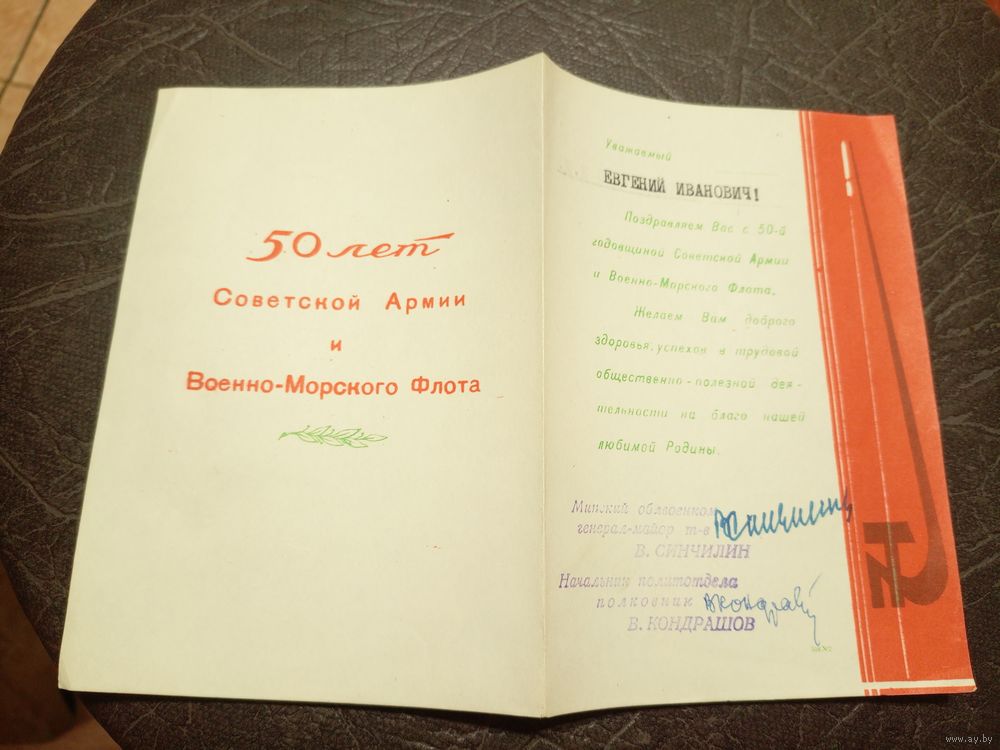 50 лет
Советской Армии
и
Военно-Морского Флота
Уважаемый
ЕВГЕНИЙ ИВАНОВИЧ!
Поздравляем Вас с 50-й
годовщиной Советской Армии
и Военно-Морского Флота.
Желаем Вам доброго
здоровья, успехов в трудовой
общественно-полезной дея-
тельности на благо нашей
любимой Родины.
Минский облвоенком
генерал-майор т-в
В. СИНЧИЛИН
Начальник политотдела
полковник
В. КОНДРАШОВ
www.ay.by